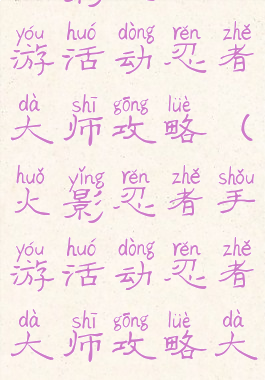 yóu huó dòng rěn zhě
游活动忍者
dà shī gōng lüè
大师攻略（
huǒ yǐng rěn zhě shǒu
火影忍者手
yóu huó dòng rěn zhě
游活动忍者
dà shī gōng lüè dà
大师攻略大